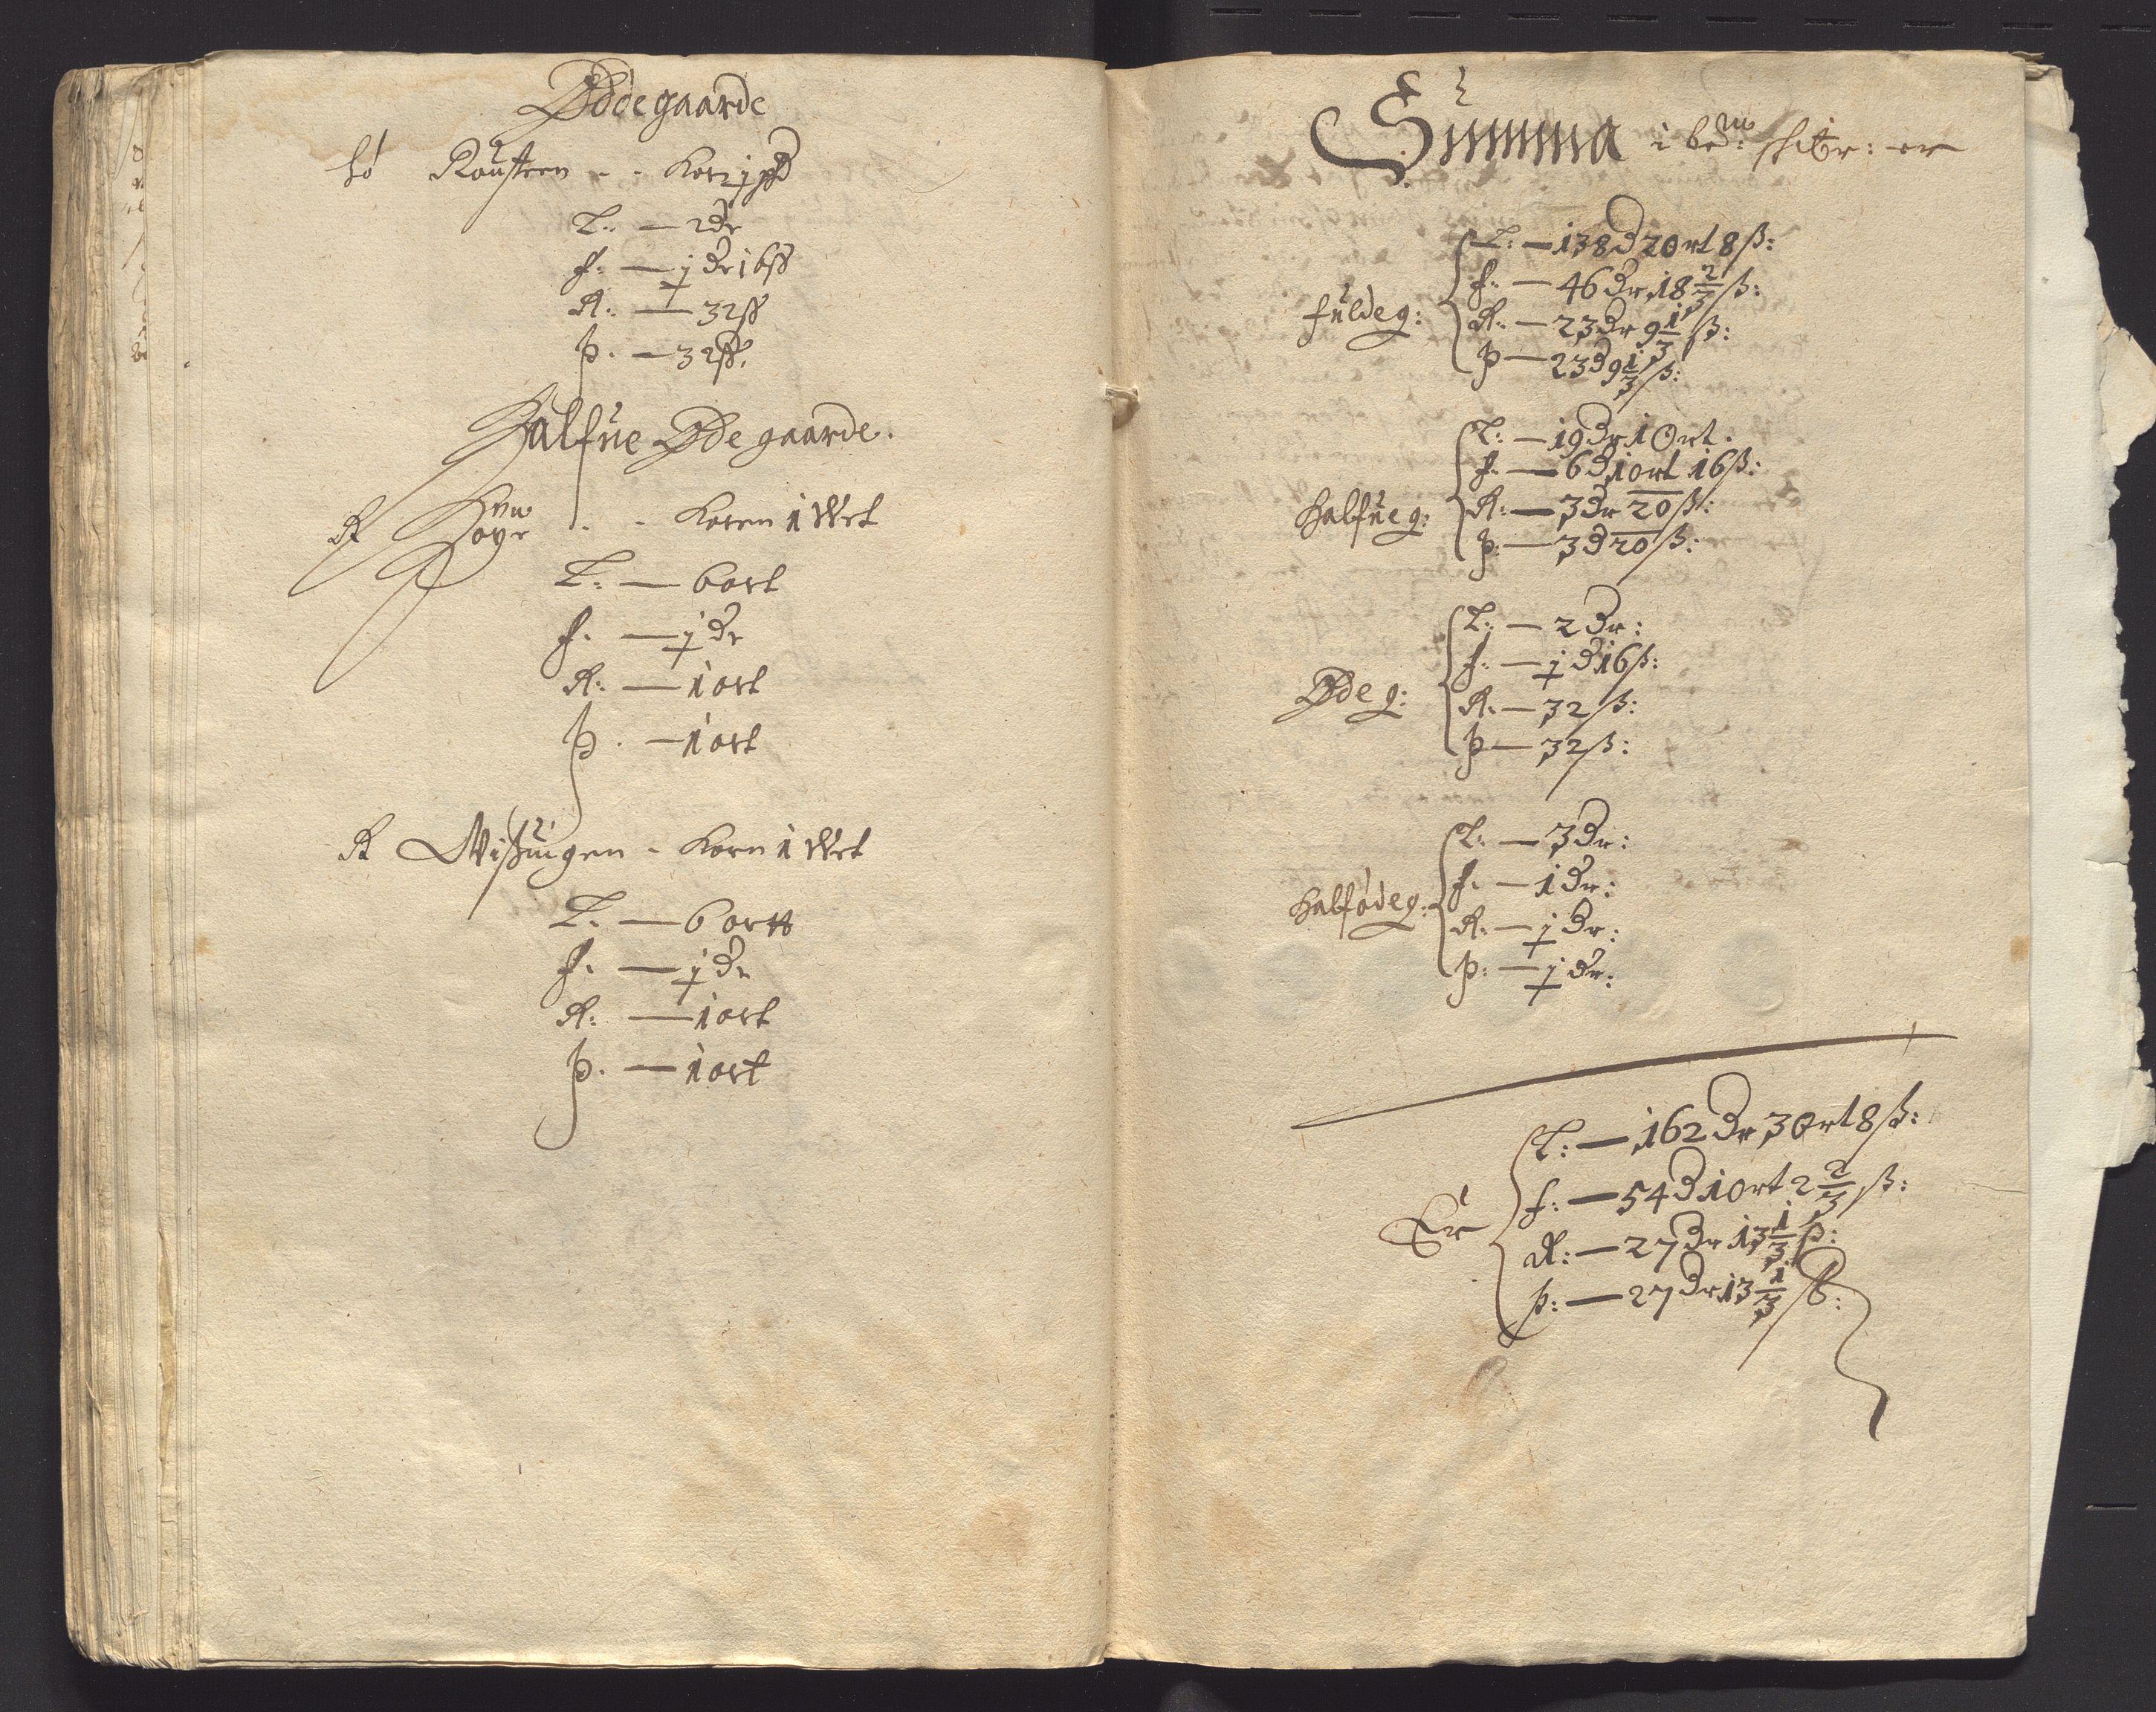 Ødegaarde
Sø Rousteen - - Korn j pd
L: — 2 dr
f. — j dr 16 ß
R: — 32 ß
þ. — 32 ß.
Halfue Ødegaarde.
R Høyr - - Koren 1 Wrt
L: — 6 ort
f. — j dr
R: — 1 ort
þ. — 1 ort
R Wißingen - Korn 1 Wrt
L. — 6 ortt
f. — j dr
R: — 1 ort
þ. — 1 ort
Summa i bem: schibr: er
fuldeg:
L: — 138 d 2 Ort 8 ß:
f. — 46 dr 18 2/3 ß:
R. — 23 dr 9 1/3 ß:
þ — 23 d 9 1/3 ß:
halfueg:
L: — 19 dr 1 Ort.
f. — 6 d 1 ort 16 ß:
R: — 3 dr 20 ß:
þ: — 3 d 20 ß:
Ødeg:
L: — 2 dr:
f. — j d 16 ß:
R. — 32 ß:
þ — 32 ß:
halfødeg:
L: — 3 dr:
f. — 1 dr:
R. — j dr:
þ: — j dr:
Er
L: — 162 dr 3 Ort 8 ß:
f: — 54 d 1 Ort 2 2/3 ß:
R: — 27 dr 13 1/3 ß:
þ: — 27 dr 13 1/3 ß: